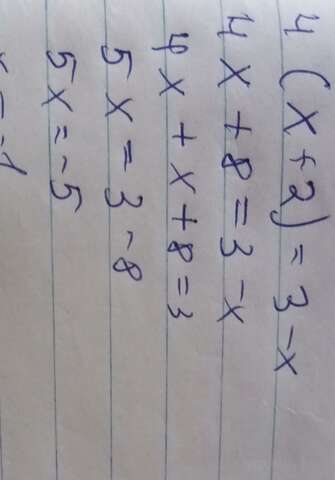 4(x+2)=3-x
4x+8=3-x
4x+x+8=3
5x=3-8
5x=-5
x=-1